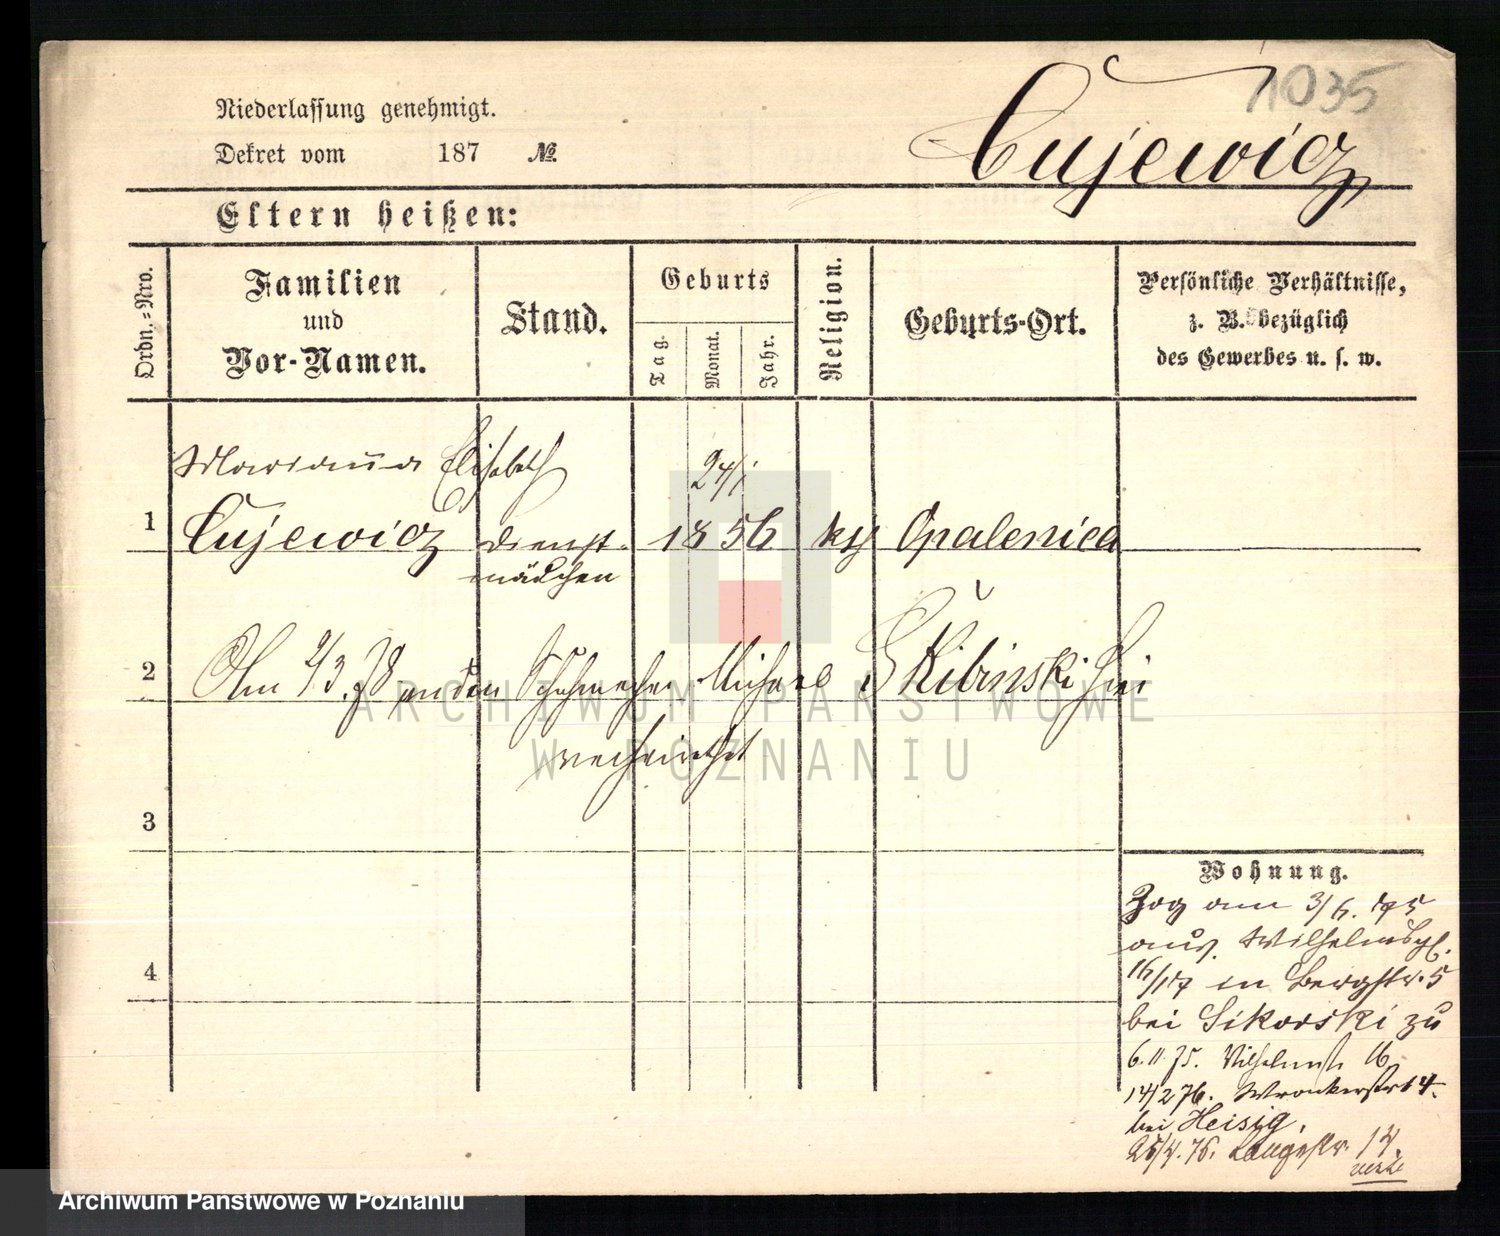 1035
Niederlassung genehmigt.
Dekret vom 187 №
Cujewicz
Eltern heißen:
Ordn.-Nro.
Familien
und
Vor-Namen.
Stand.
Geburts
Tag.
Monat.
Jahr.
Religion.
Geburts-Ort.
Persönliche Verhältnisse,
z. B. bezüglich
des Gewerbes u. s. w.
Marianna Elisabeth 24/1
1 Cujewicz Dienst- 1856 kth Opalenica
mädchen
2 Am 4/3.78 an den Schuhmacher Michael Skibinski hier
verheirathet
ARCHIWUM PAŃSTWOWE
W POZNANIU
3
4
Wohnung.
Zog am 3/6. 75
aus Wilhelmspl.
16/17 in Bergstr. 5
bei Sikorski zu
6.11.75. Wilhelmstr. 16
14/2 76. Wronkerstr 14.
bei Heisig.
25/4.76. Langestr. 14.
Archiwum Państwowe w Poznaniu